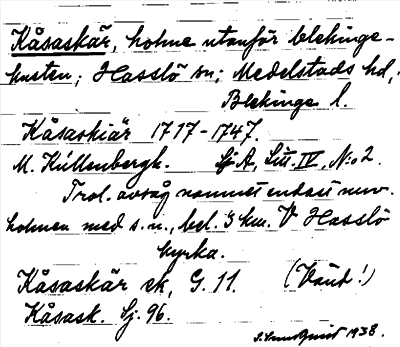 Kåsaskär, holme utanför blekinge-
kusten; Hasslö sn; Medelstads hd,
Blekinge l.
Kåsaskiär 1717-1747.
M. Kullenbergh. Lj A, Litt. IV, N:o 2.
Trol. avsåg namnet endast nuv.
holmen med s. n., bel. 3 km. V Hasslö
kyrka.
Kåsaskär ek, G. 11. (Vänd!)
Kåsask. Sj. 96.
S. Sundquist 1938.